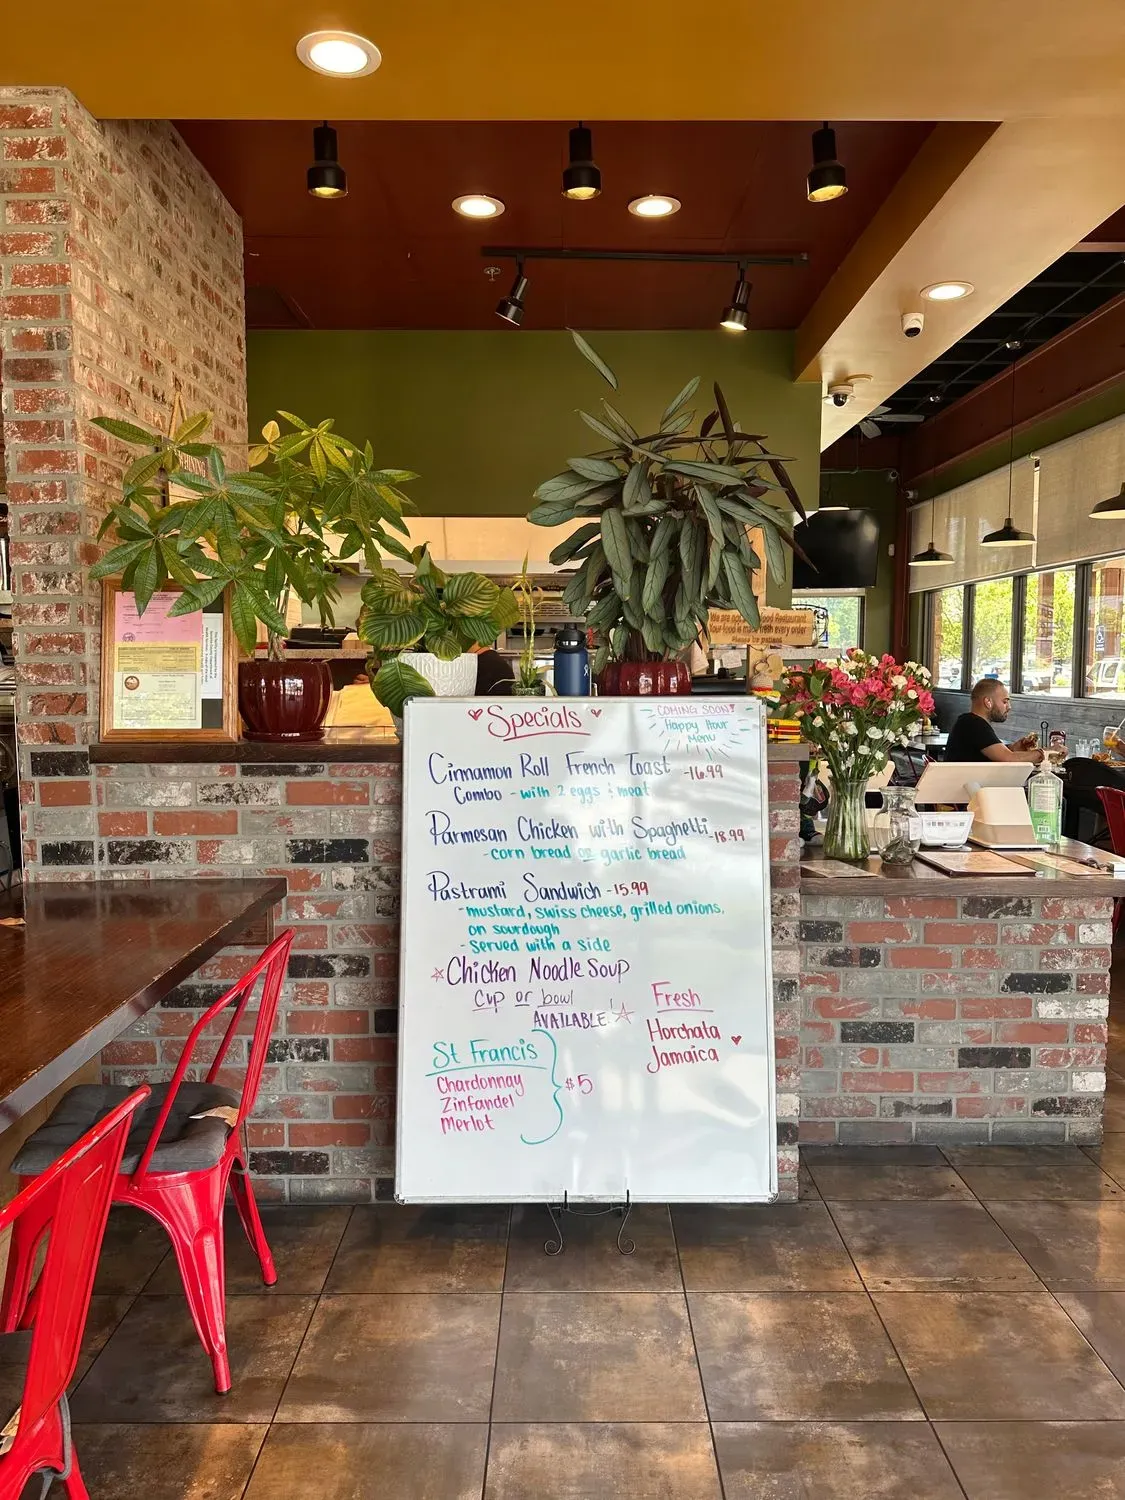 Specials
COMING SOON!
Happy Hour
Menu
Cinnamon Roll French Toast -16.99
Combo - with 2 eggs & meat
Parmesan Chicken with Spaghetti -18.99
-corn bread or garlic bread
Pastrami Sandwich -15.99
-mustard, swiss cheese, grilled onions,
on sourdough
- Served with a side
Chicken Noodle Soup
Cup or bowl
AVAILABLE!
Fresh
Horchata
Jamaica
St Francis
Chardonnay
Zinfandel
Merlot
$5
We are not
food Restaurant
Your food is made fresh every order
Please be patient